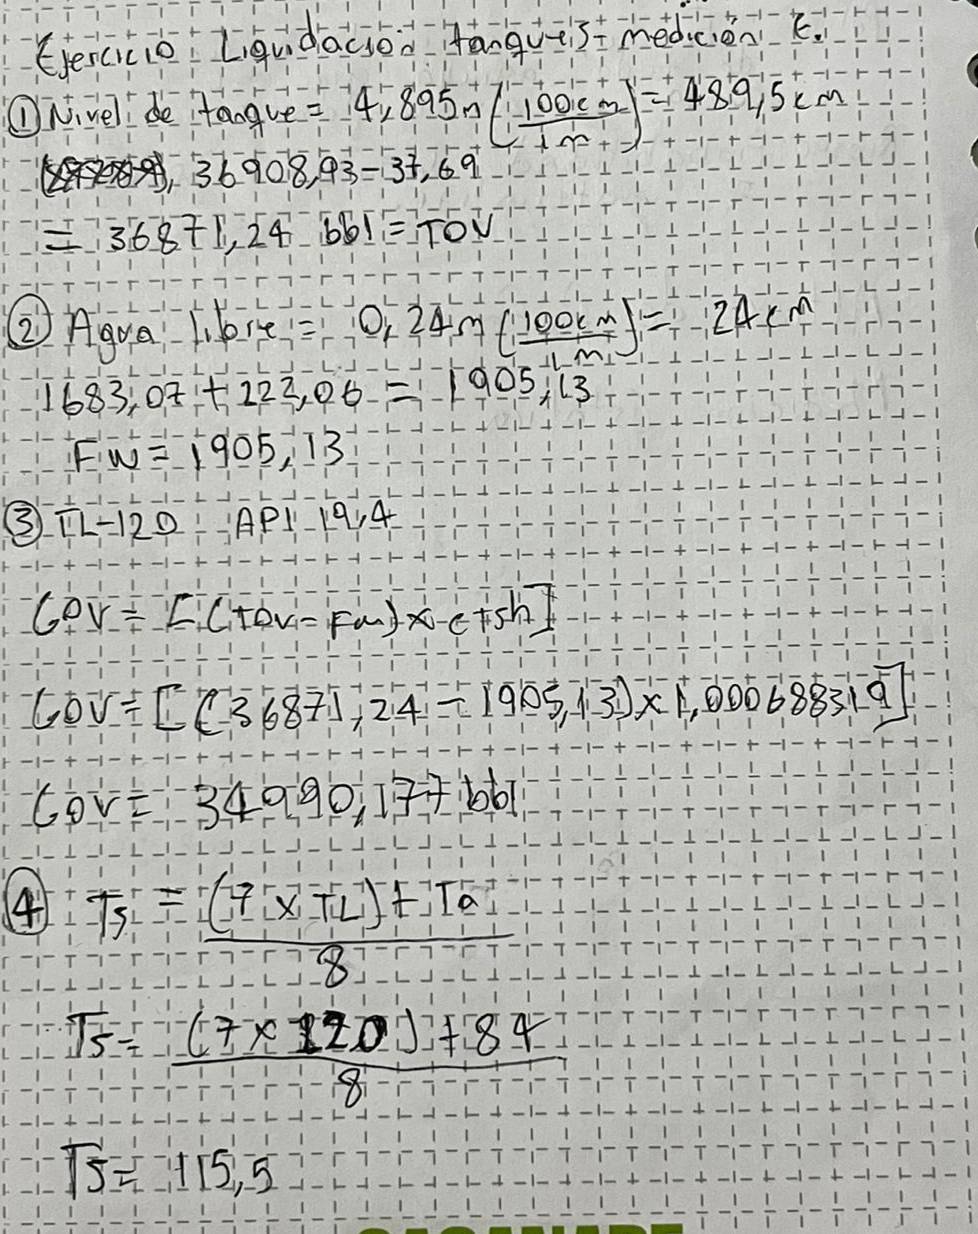 Ejercicio Liquidación tanques- medición E.
① Nivel de tanque = 4,895m (100cm/1m) = 489,5cm
36908,93-37,69
= 36871,24 bbl = TOV
② Agua libre = 0,24m (100cm/1m) = 24cm
1683,07 + 222,06 = 1905,13
FW = 1905,13
③ TL-120 API 19,4
GOV = [(TOV - FW) x ctsh]
GOV = [(36871,24 - 1905,13) x 1,000688319]
GOV = 34990,177 bbl
④ Ts = (7 x TL) + Ta
8
Ts = (7 x 120) + 84
8
Ts = 115,5